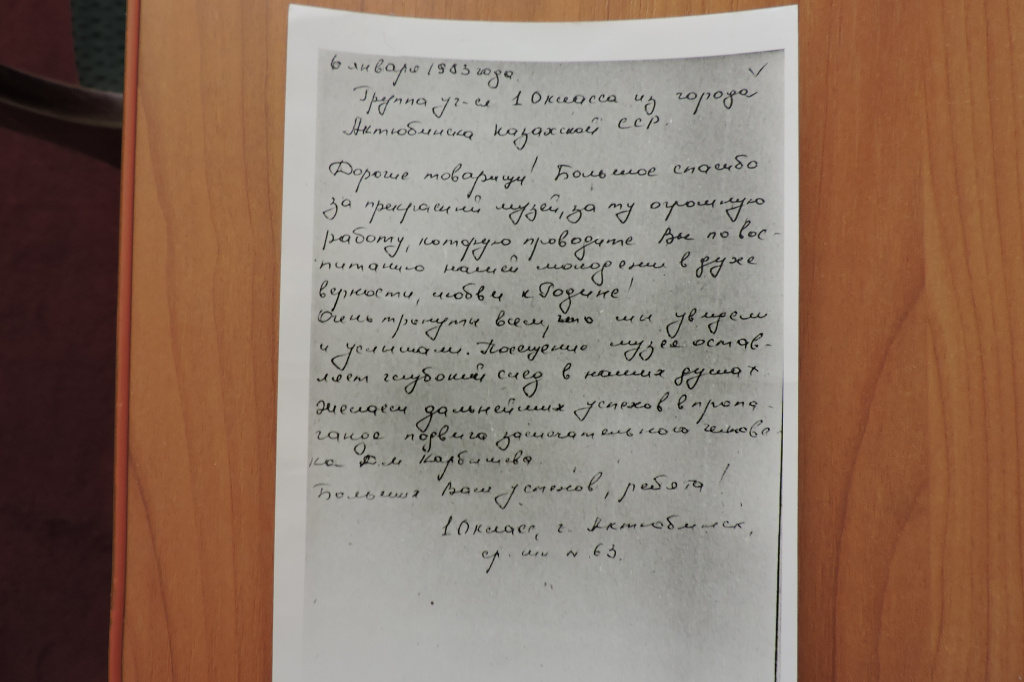 6 января 1983 года.
Группа уч-ся 10 класса из города
Актюбинска Казахской ССР.
Дорогие товарищи! Большое спасибо
за прекрасный музей, за ту огромную
работу, которую проводите Вы по вос-
питанию нашей молодежи в духе
верности, любви к Родине!
Очень тронуты всем, что мы увидели
и услышали. Посещение музея остав-
ляет глубокий след в наших душах.
Желаем дальнейших успехов в пропа-
ганде подвига замечательного челове-
ка Д.М Карбышева.
Больших Вам успехов, ребята!
10 класс, г. Актюбинск,
ср. шк N 63.